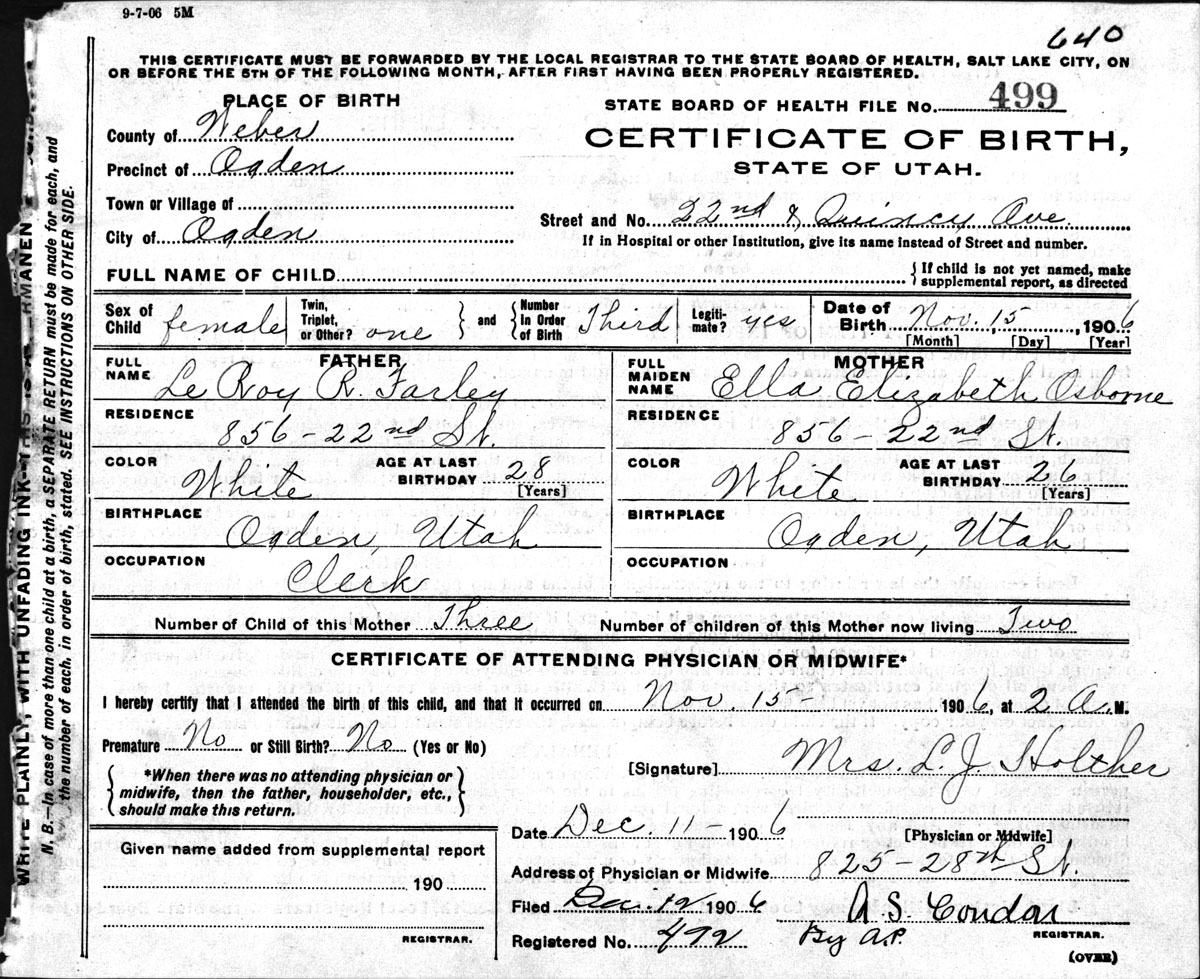 9-7-06 5M
640
THIS CERTIFICATE MUST BE FORWARDED BY THE LOCAL REGISTRAR TO THE STATE BOARD OF HEALTH, SALT LAKE CITY, ON
OR BEFORE THE 5TH OF THE FOLLOWING MONTH, AFTER FIRST HAVING BEEN PROPERLY REGISTERED.
PLACE OF BIRTH
County of Weber
Precinct of Ogden
Town or Village of
City of Ogden
STATE BOARD OF HEALTH FILE No. 499
CERTIFICATE OF BIRTH,
STATE OF UTAH.
Street and No. 22nd & Quincy Ave.
If in Hospital or other Institution, give its name instead of Street and number.
FULL NAME OF CHILD
{If child is not yet named, make
supplemental report, as directed
Sex of Child female
Twin, Triplet, or Other? one
} and {
Number In Order of Birth Third
Legiti-mate? yes
Date of Birth Nov. 15, 1906
[Month] [Day] [Year]
FATHER
FULL NAME Le Roy R. Farley
RESIDENCE 856-22nd St.
COLOR White AGE AT LAST BIRTHDAY 28 [Years]
BIRTHPLACE Ogden, Utah
OCCUPATION Clerk
MOTHER
FULL MAIDEN NAME Ella Elizabeth Osborne
RESIDENCE 856-22nd St.
COLOR White AGE AT LAST BIRTHDAY 26 [Years]
BIRTHPLACE Ogden, Utah
OCCUPATION
Number of Child of this Mother Three Number of children of this Mother now living Two
CERTIFICATE OF ATTENDING PHYSICIAN OR MIDWIFE*
I hereby certify that I attended the birth of this child, and that it occurred on Nov 15- 1906, at 2 A.M.
Premature No or Still Birth? No (Yes or No)
{*When there was no attending physician or
midwife, then the father, householder, etc.,
should make this return.}
[Signature] Mrs. L. J. Holther
Date Dec. 11- 1906 [Physician or Midwife]
Address of Physician or Midwife 825-28th St.
Filed Dec. 12 1906 A. S. Condon
REGISTRAR.
Registered No. 492 By A.P.
(OVER)
Given name added from supplemental report
190
REGISTRAR.
WRITE PLAINLY, WITH UNFADING INK-THIS IS
N. B.—In case of more than one child at a birth, a SEPARATE RETURN must be made for each, and
the number of each, in order of birth, stated. SEE INSTRUCTIONS ON OTHER SIDE.